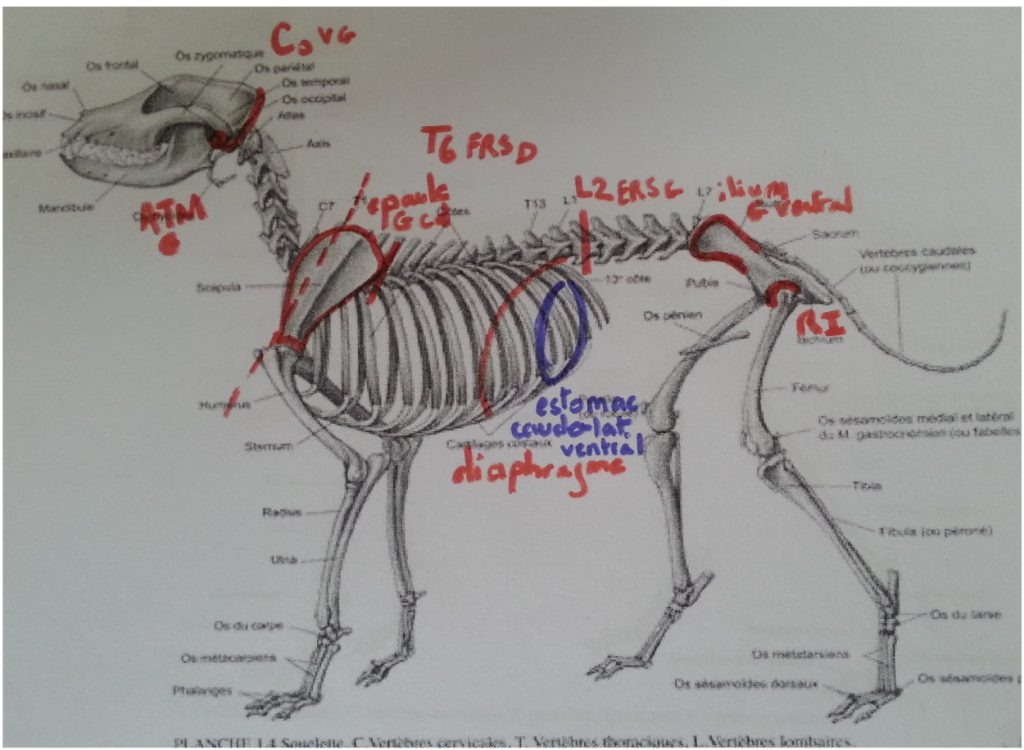 C₀ VG
Os zygomatique
Os frontal
Os pariétal
Os nasal
Os temporal
Os incisif
Os occipital
Atlas
axillaire
Axis
T6 FRS D
Mandibule
ATM
G
C7
épaule
G
L2 ERS G
T13
L1
L7
ilium
G ventral
Sacrum
Vertèbres caudales
(ou coccygiennes)
Scapula
13e côte
Pubis
Os pénien
RI
Humérus
Fémur
estomac
caudo-lat
ventral
Sternum
Cartilages costaux
diaphragme
Os sésamoïdes médial et latéral
du M. gastrocnémien (ou fabelles
Tibia
Radius
Fibula (ou péroné)
Ulna
Os du carpe
Os du tarse
Os métacarpiens
Os métatarsiens
Phalanges
Os sésamoïdes dorsaux
Os sésamoïdes p
PLANCHE 1.4 Squelette. C. Vertèbres cervicales. T. Vertèbres thoraciques. L. Vertèbres lombaires.